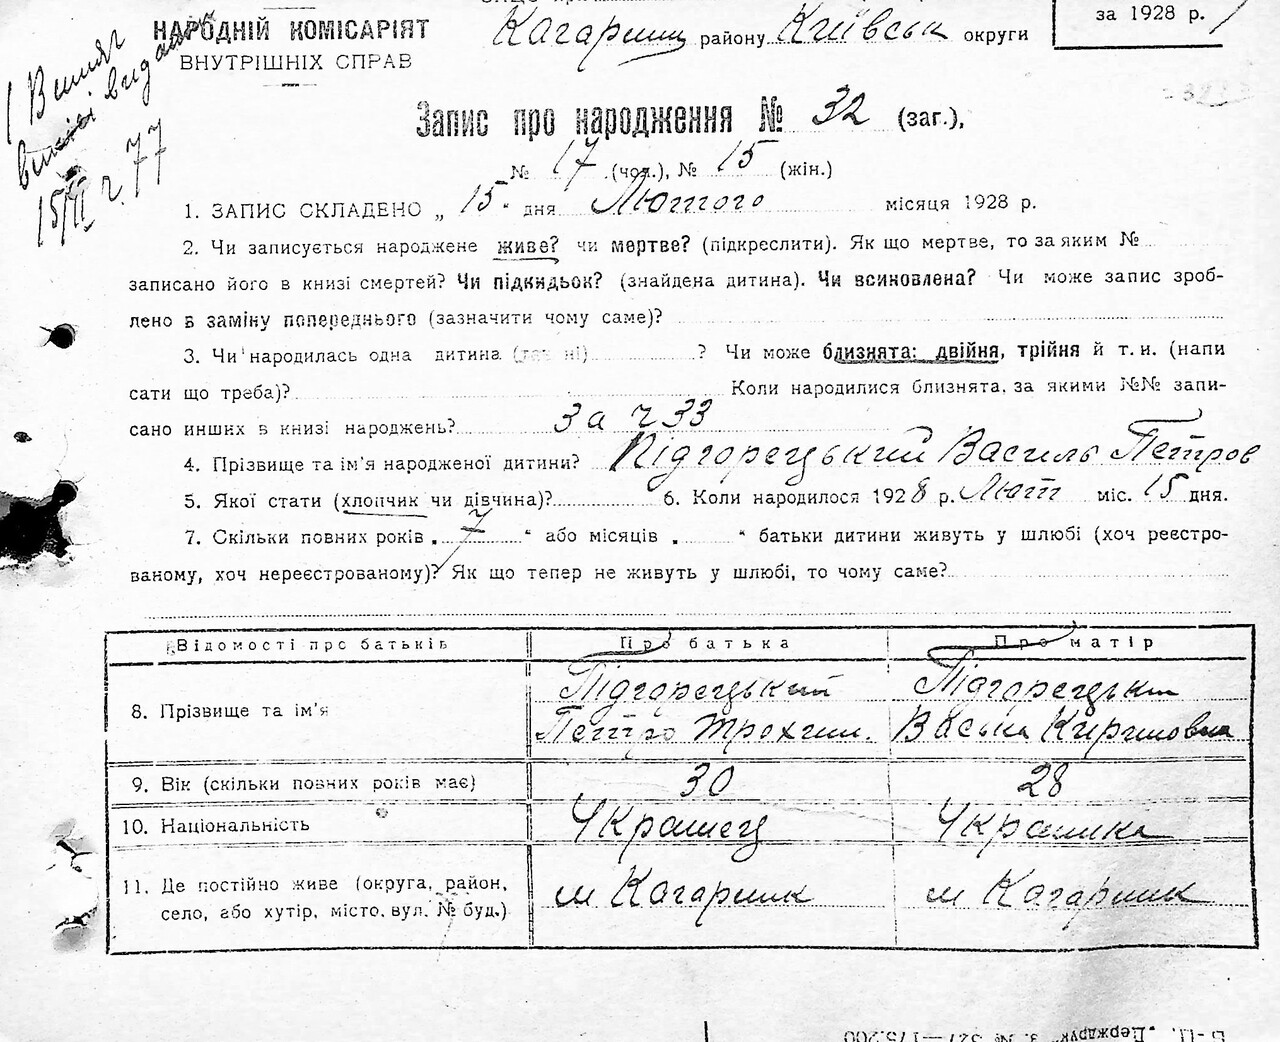 НАРОДНІЙ КОМІСАРІЯТ
ВНУТРІШНІХ СПРАВ
Кагарлиц району Київськ округи
за 1928 р.
15/II 77
Запис про народження № 32 (заг.),
№ 17 (чол.), № 15 (жін.)
1. ЗАПИС СКЛАДЕНО „ 15 " дня Лютого місяця 1928 р.
2. Чи записується народжене живе? чи мертве? (підкреслити). Як що мертве, то за яким №
записано його в книзі смертей? Чи підкидьок? (знайдена дитина). Чи всиновлена? Чи може запис зроб-
лено в заміну попереднього (зазначити чому саме)?
3. Чи народилась одна дитина (так ні) ? Чи може близнята: двійня, трійня й т. и. (напи
сати що треба)? Коли народилися близнята, за якими №№ запи-
сано инших в книзі народжень? За ч 33
4. Прізвище та ім'я народженої дитини? Підгорецький Василь Петров
5. Якої стати (хлопчик чи дівчина)? 6. Коли народилося 1928 р. Лют міс. 15 дня.
7. Скільки повних років „ 7 " або місяців „ " батьки дитини живуть у шлюбі (хоч реєстро-
ваному, хоч нереєстрованому)? Як що тепер не живуть у шлюбі, то чому саме?
Відомості про батьків Про батька Про матір
Підгорецький Підгорецьки
8. Прізвище та ім'я
Петро Трохим. Васька Кириловна
9. Вік (скільки повних років має) 30 28
10. Національність Українец Українка
11. Де постійно живе (округа, район, м Кагарлик м Кагарлик
село, або хутір, місто, вул. № буд.)
Б-Ц. „Держдрук" З. № 327—175.200